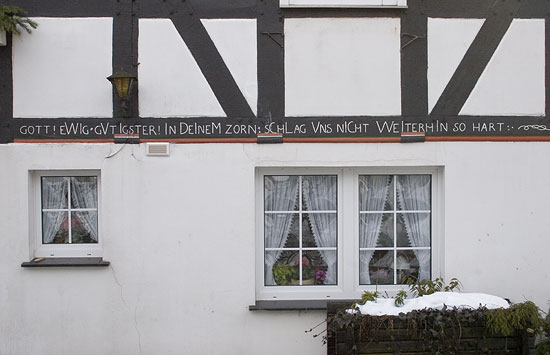 GOTT! EWIG·GVTIGSTER! IN DEINEM ZORN; SCHLAG VNS NICHT WEITERHIN SO HART:~